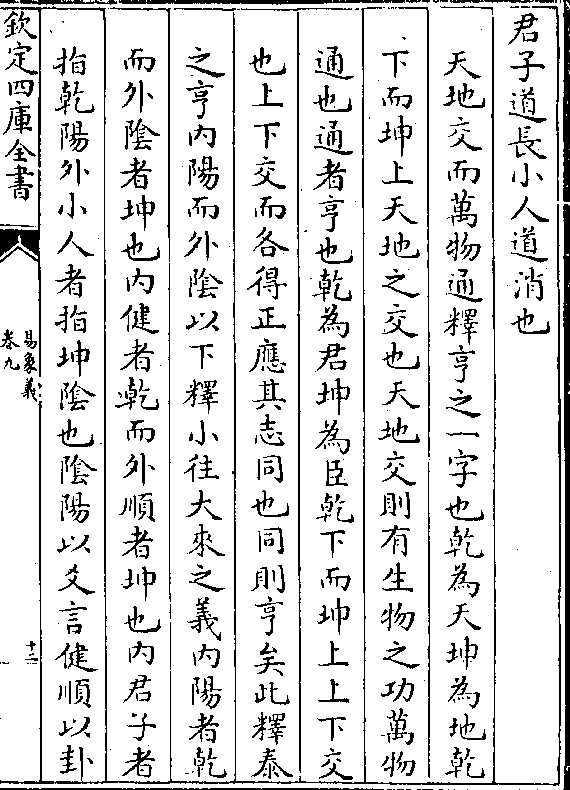 君子道長小人道消也
天地交而萬物通釋亨之一字也乾為天坤為地乾
下而坤上天地之交也天地交則有生物之功萬物
通也通者亨也乾為君坤為臣乾下而坤上上下交
也上下交而各得正應其志同也同則亨矣此釋泰
之亨内陽而外陰以下釋小往大來之義内陽者乾
而外陰者坤也内健者乾而外順者坤也内君子者
指乾陽外小人者指坤陰也陰陽以爻言健順以卦
欽定四庫全書
易象義
卷九
十二